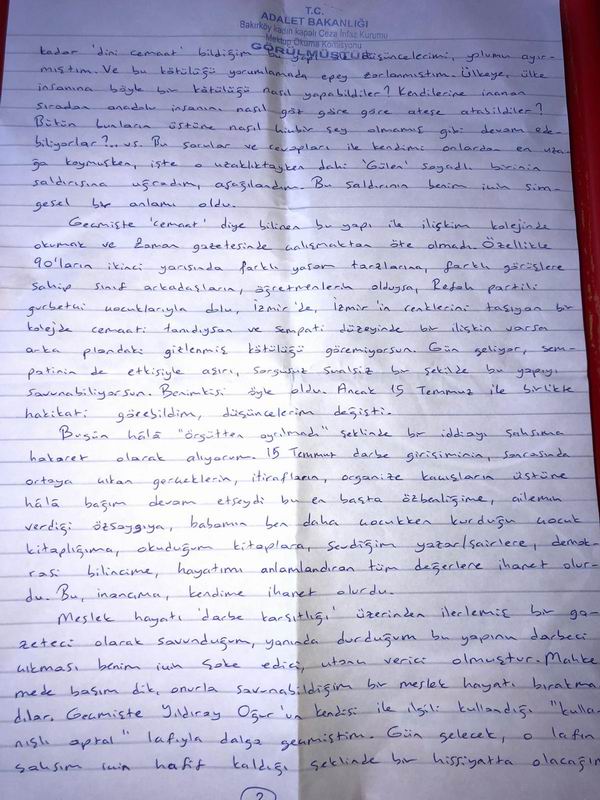 T.C.
ADALET BAKANLIĞI
Bakırköy kadın kapalı Ceza İnfaz Kurumu
Mektup Okuma Komisyonu
GÖRÜLMÜŞTÜR
kadar 'dini cemaat' bildiğim bu yapı düşüncelerimi, yolumu ayır-
mıştım. Ve bu kötülüğü yorumlamada epey zorlanmıştım. Ülkeye, ülke
insanına böyle bir kötülüğü nasıl yapabildiler? Kendilerine inanan
sıradan anadolu insanını nasıl göz göre göre ateşe atabildiler?
Bütün bunların üstüne nasıl hiçbir şey olmamış gibi devam ede-
biliyorlar?.. vs. Bu sorular ve cevapları ile kendimi onlardan en uza-
ğa koymuşken, işte o uzaklıktayken dahi 'Gülen' soyadlı birinin
saldırısına uğradım, aşağılandım. Bu saldırının benim için sim-
gesel bir anlamı oldu.
Geçmişte 'cemaat' diye bilinen bu yapı ile ilişkim kolejinde
okumak ve Zaman gazetesinde çalışmaktan öte olmadı. Özellikle
90'ların ikinci yarısında farklı yaşam tarzlarına, farklı görüşlere
sahip sınıf arkadaşların, öğretmenlerin olduysa, Refah partili
gurbetçi çocuklarıyla dolu, İzmir'de, İzmir'in renklerini taşıyan bir
kolejde cemaati tanıdıysan ve sempati düzeyinde bir ilişkin varsa
arka plandaki gizlenmiş kötülüğü göremiyorsun. Gün geliyor, sem-
patinin de etkisiyle aşırı, sorgusuz sualsiz bir şekilde bu yapıyı
savunabiliyorsun. Benimkisi öyle oldu. Ancak 15 Temmuz ile birlikte
hakikati görebildim, düşüncelerim değişti.
Bugün hâlâ "örgütten ayrılmadı" şeklinde bir iddiayı şahsıma
hakaret olarak alıyorum. 15 Temmuz darbe girişiminin, sonrasında
ortaya çıkan gerçeklerin, itirafların, organize kaçışların üstüne
hâlâ bağım devam etseydi bu en başta özbenliğime, ailemin
verdiği özsaygıya, babamın ben daha çocukken kurduğu çocuk
kitaplığıma, okuduğum kitaplara, sevdiğim yazar/şairlere, demok-
rasi bilincime, hayatımı anlamlandıran tüm değerlere ihanet olur-
du. Bu, inancıma, kendime ihanet olurdu.
Meslek hayatı 'darbe karşıtlığı' üzerinden ilerlemiş bir ga-
zeteci olarak savunduğum, yanında durduğum bu yapının darbeci
çıkması benim için şoke edici, utanç verici olmuştur. Mahke
mede başım dik, onurla savunabildiğim bir meslek hayatı bırakma
dılar. Geçmişte Yıldıray Oğur'un kendisi ile ilgili kullandığı "kulla-
nışlı aptal" lafıyla dalga geçmiştim. Gün gelecek, o lafın
şahsım için hafif kaldığı şeklinde bir hissiyatta olacağım
2